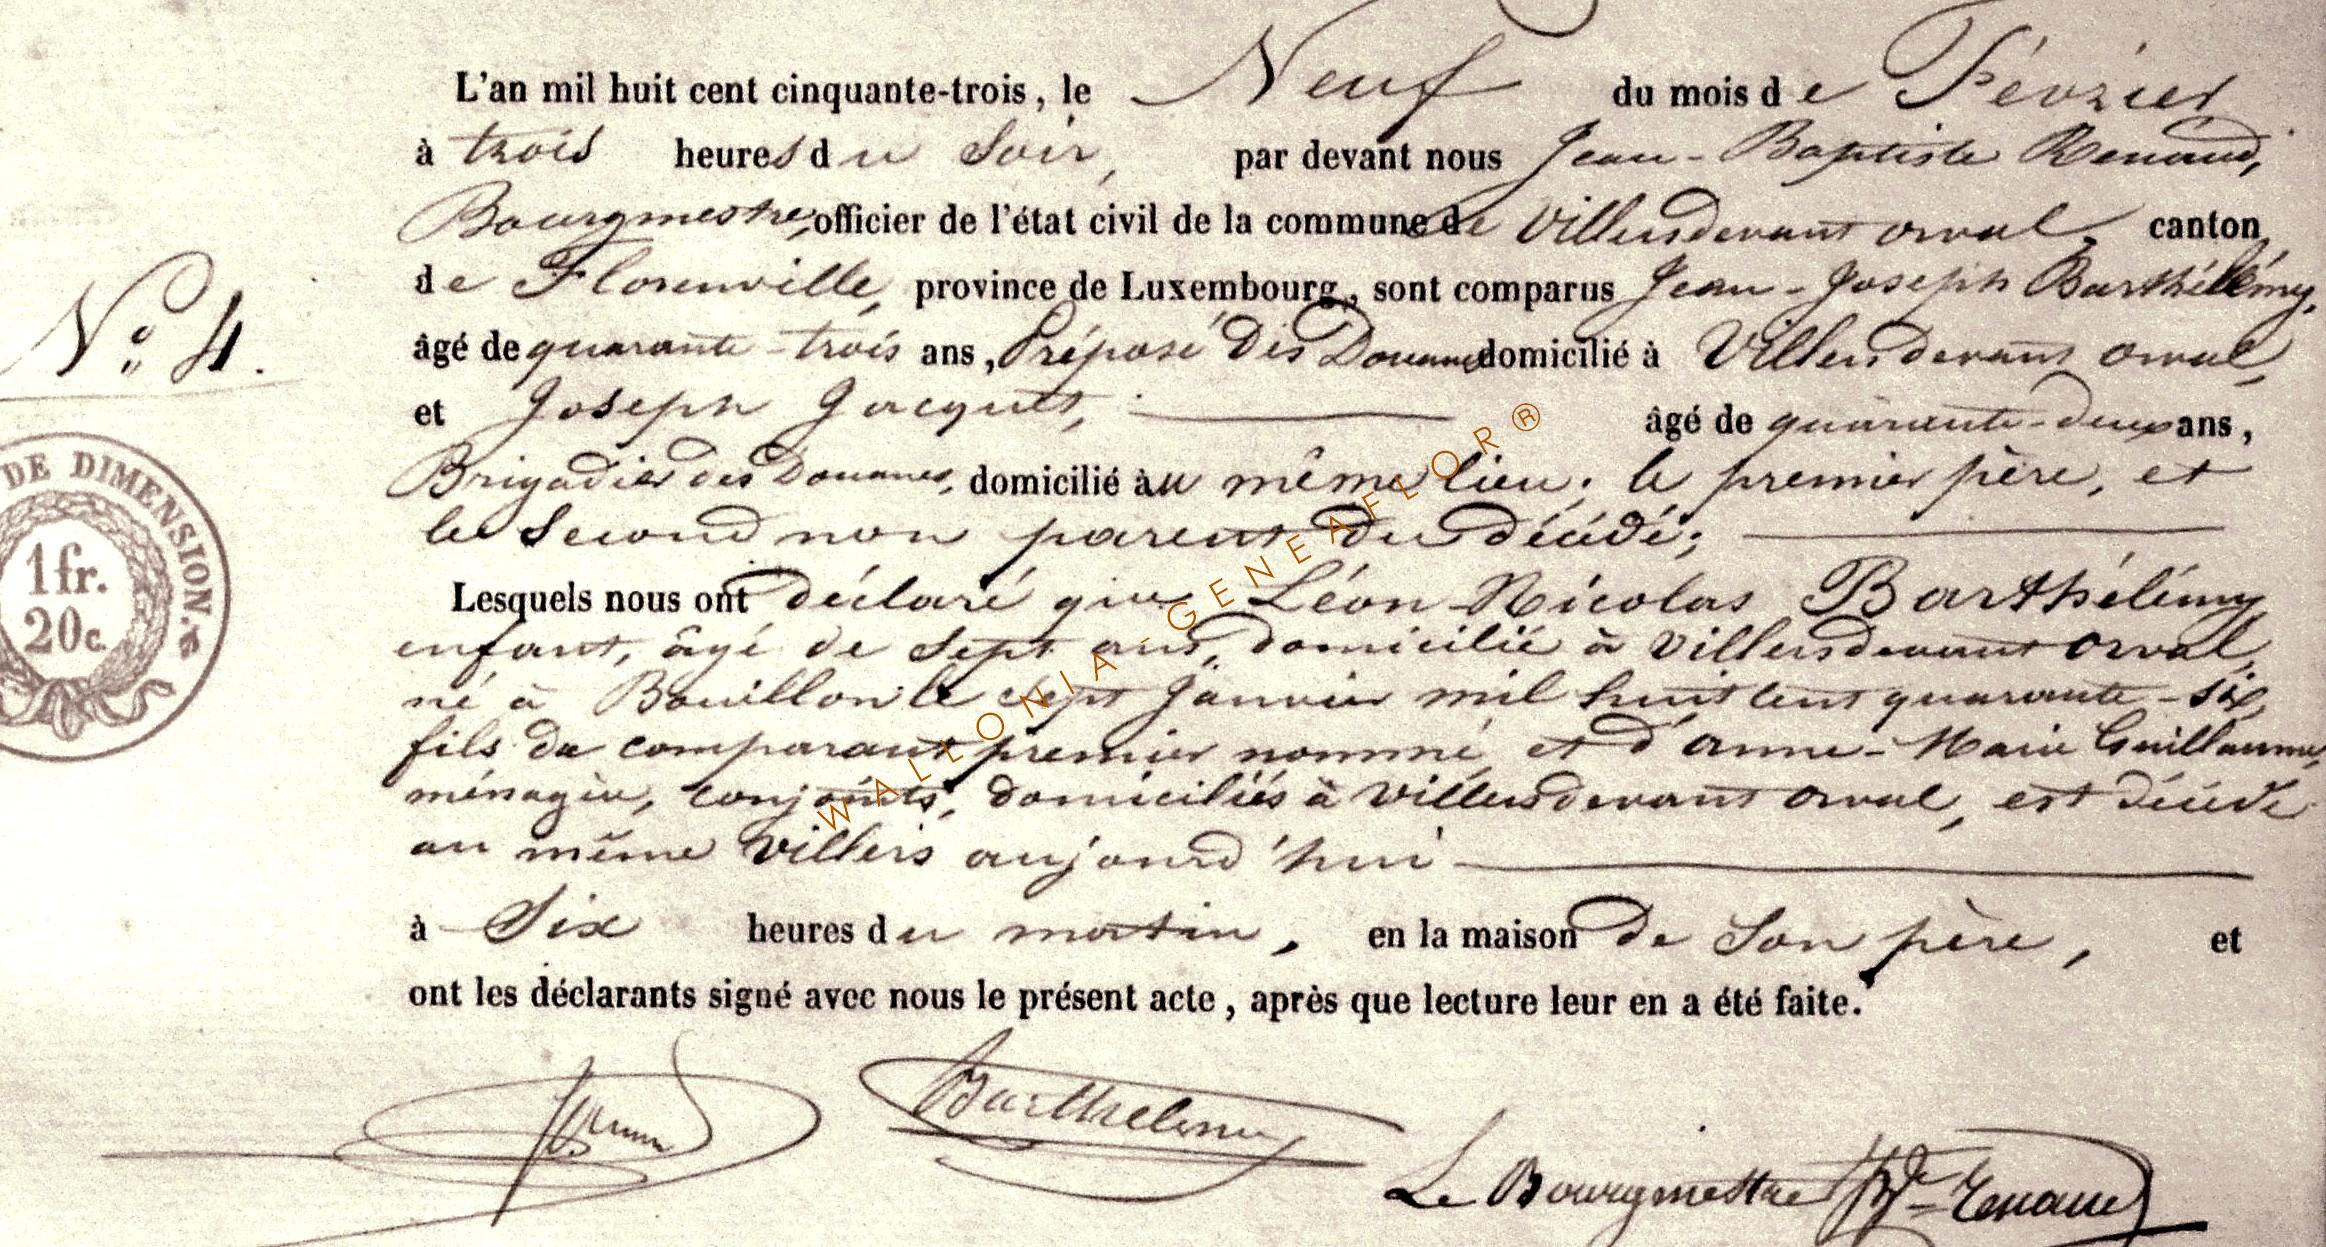 L'an mil huit cent cinquante-trois, le Neuf du mois de Février
à trois heures du Soir, par devant nous Jean-Baptiste Renaud,
Bourgmestre, officier de l'état civil de la commune de Villersdevant orval, canton
de Florenville, province de Luxembourg, sont comparus Jean-Joseph Barthélémy,
âgé de quarante-trois ans, Préposé Des Douanes domicilié à Villersdevant orval,
et Joseph Jacquet, âgé de quarante-deux ans,
Brigadier des Douanes, domicilié au même lieu; le premier père, et
le Second non parent du décédé;
Lesquels nous ont déclaré que Léon-Nicolas Barthélémy
enfant, âgé de Sept ans, domicilié à Villersdevant orval,
né à Bouillon le sept Janvier mil huit cent quarante-six,
fils du comparant premier nommé, et d'anne-Marie Guillaume,
ménagère, conjoints, domiciliés à Villersdevant orval, est décédé
au même Villers aujourd'hui
à Six heures du matin, en la maison de Son père, et
ont les déclarants signé avec nous le présent acte, après que lecture leur en a été faite.
N° 4.
DE DIMENSION.
1 fr.
20 c.
WALLONIA-GENEAFLOR®
Barthélemy
Le Bourgmestre JBte Renaud